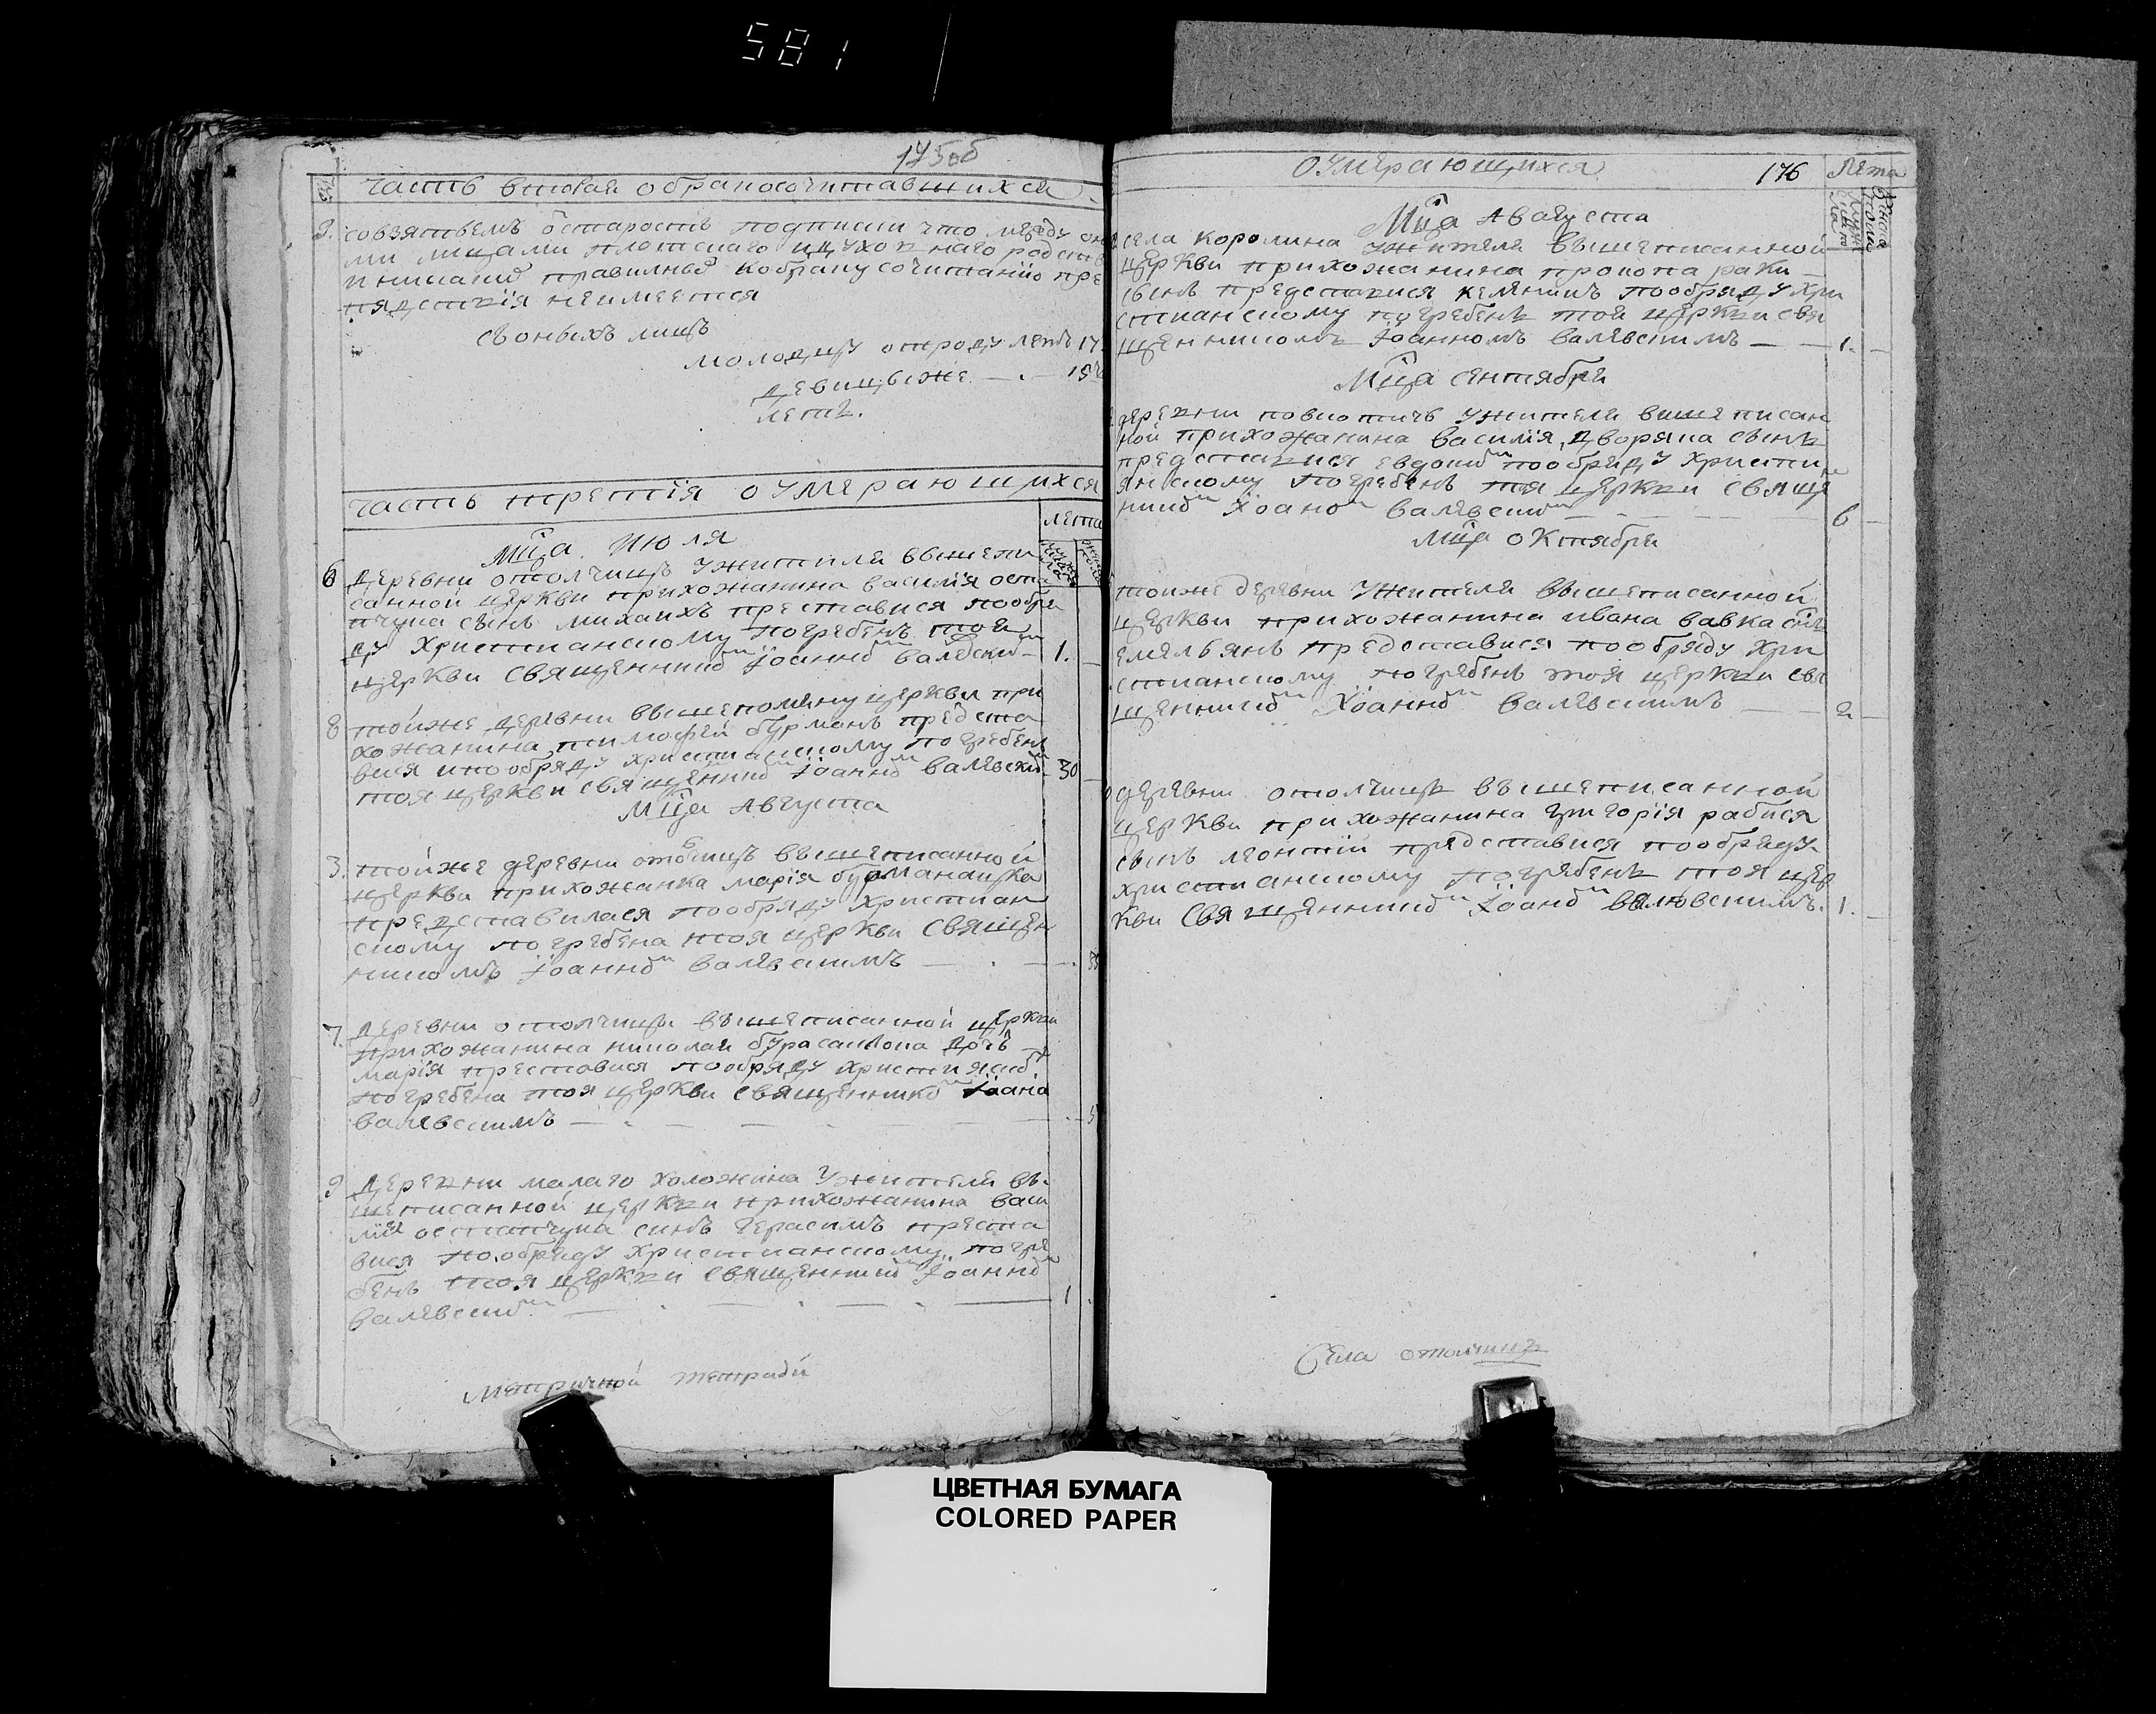 581
175об
часть вторая о бракосочитавшихся
9. совзятьемъ
подписки что между они
ми лицами плотскаго идуховнаго родств
правилныя кобраку сочитанію пре
пядствія неимеется
съоныхъ лицъ
молодцу отроду летъ 17
девицыже 15
летъ.
часть третія о умераюшихся
лета
Мца Июля
6 деревни отолчицъ ужителя вышепи
санной церкви прихожанина василія оста
пчука сынъ престависе пообря
ду христианскому погребенъ тоя
церкви священнико Іоанно Валевски 1.
8 тойже деревни вышепомяну церкви при
хожанина тимофей бурманъ предста
вися ипообряду христианскому погребенъ
тоя церкви священнико Іоанно валевски 30
Мца Августа
3. тойже деревни вышеписанной
церкви прихожанка марія
представилася пообряду христиан
скому погребена тоя церкви священ
никомъ Іоанно валевскимъ
7. деревни отолчицы вышеписанной церкви
прихожанина николая дочь
марія преставися пообряду
погребена тоя церкви священнико Іоанно
валевскимъ 5
9 деревни малаго холожина ужителя вы
шеписанной церкви прихожанина васи
лія остапчука синъ Герасимъ преста
вися по обряду христианскому погре
бенъ тоя церкви священнико Іоанно
валевски 1
Метричной тетради
Оумераюшихся 176 Лета
Мца Августа
села Королина ужителя вышеписанной
церкви прихожанина прокопа раки
сынъ представися пообряду хри
стианскому погребенъ тоя церкви свя
щенникомъ Іоанномъ валевскимъ 1.
Мца Сентября
деревни ужителя вишеписан
ной прихожанина василія дворяка сынъ
представися евдоки пообряду христи
янскому погребенъ тоя церкви свяще
ннико Іоано валевски 6
Мца октября
тоиже деревни ужителя вышеписанной
церкви прихожанина ивана вавка снъ
емельянъ представися пообряду хри
стианскому погребенъ тоя церкви свя
щеннико Іоанно валевскимъ 2
деревни отолчицъ вышеписанной
церкви прихожанина григорія
сынъ леонтій представися пообряду
христианскому погребенъ тоя цер
кви священнико Іоано валювскимъ. 1.
Села отолчицъ
ЦВЕТНАЯ БУМАГА
COLORED PAPER